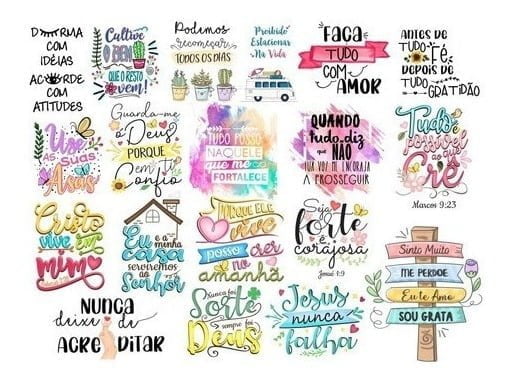 DURMA
COM
IDÉIAS
ACORDE
COM
ATITUDES
Cultive
O BEM
QUE O RESTO
vem!
Podemos
recomeçar
TODOS OS DIAS
Proibido
Estacionar
Na Vida
FAÇA
TUDO
COM
AMOR
ANTES DE
TUDO FÉ,
DEPOIS DE
TUDO
GRATIDÃO
Use
AS SUAS
Asas
Guarda-me
ó Deus
PORQUE
Em Ti
Confio
TUDO POSSO
NAQUELE
que me
FORTALECE
QUANDO
tudo diz
que NÃO
SUA VOZ ME ENCORAJA
A PROSSEGUIR
Tudo é
possível
ao que
Crê
Marcos 9:23
Cristo
vive em
mim
Eu e a
minha
casa
serviremos
ao Senhor
PORQUE ELE
vive
posso
crer
no
amanhã
Seja
forte
e
corajosa
Josué 1:9
Sinto Muito
ME PERDOE
Eu te Amo
SOU GRATA
NUNCA
deixe de
ACREDITAR
Nunca foi
Sorte
sempre foi
Deus
Jesus
nunca
falha